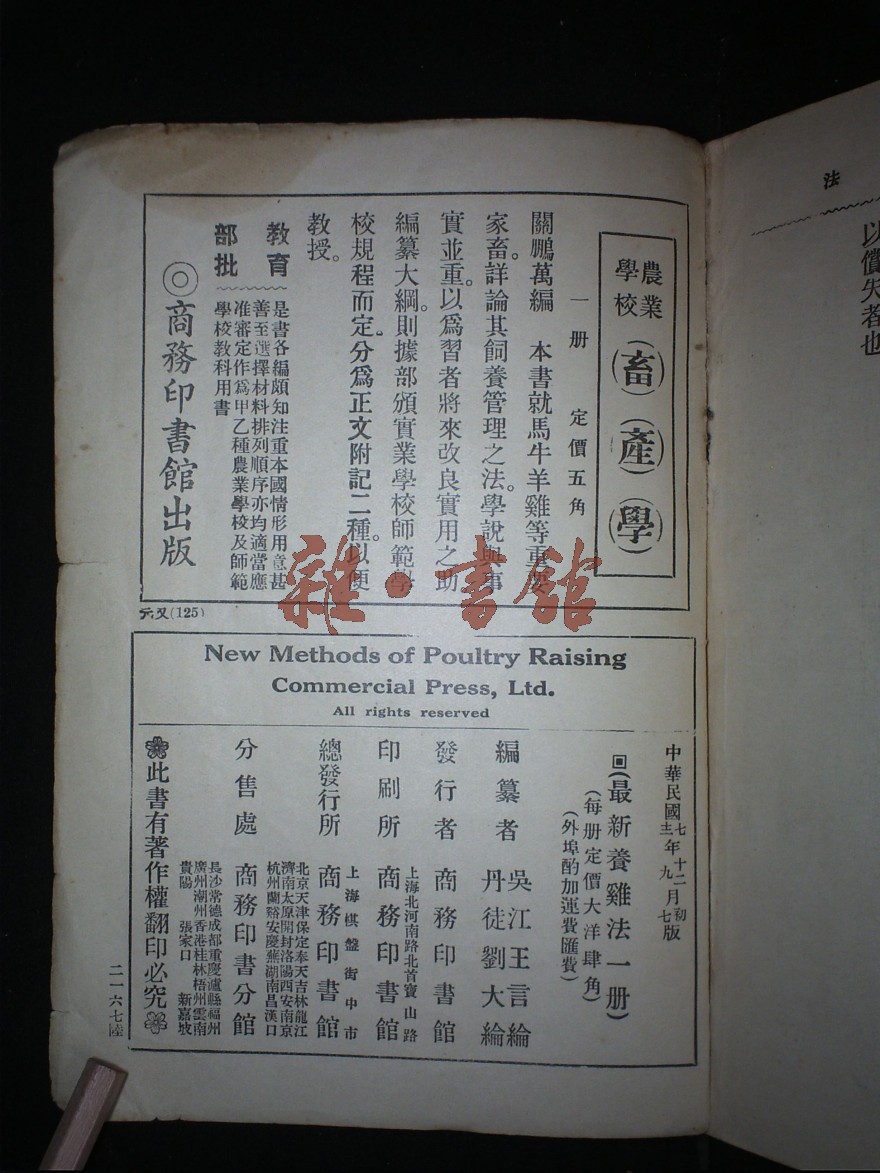 法
以償失者也
農業
學校
(畜)(產)(學)
一册 定價五角
關鵬萬編 本書就馬牛羊雞等重要
家畜。詳論其飼養管理之法。學說與事
實並重。以爲習者將來改良實用之助
編纂大綱。則據部頒實業學校師範學
校規程而定。分爲正文附記二種。以便
教授。
教育
部批
是書各編頗知注重本國情形用意甚
善至選擇材料排列順序亦均適當應
准審定作爲甲乙種農業學校及師範
學校教科用書
◎商務印書館出版
元又(125)
雜·書館
New Methods of Poultry Raising
Commercial Press, Ltd.
All rights reserved
中華民國七年十二月初版
十二年九月七版
回(最新養雞法一册)
(每册定價大洋肆角)
(外埠酌加運費匯費)
編纂者 吳江王言綸
丹徒劉大綸
發行者 商務印書館
印刷所 上海北河南路北首寶山路
商務印書館
總發行所 上海棋盤街中市
商務印書館
分售處 商務印書分館
北京天津保定奉天吉林龍江
濟南太原開封洛陽西安南京
杭州蘭谿安慶蕪湖南昌漢口
長沙常德成都重慶瀘縣福州
廣州潮州香港桂林梧州雲南
貴陽 張家口 新嘉坡
此書有著作權翻印必究
二一六七陸